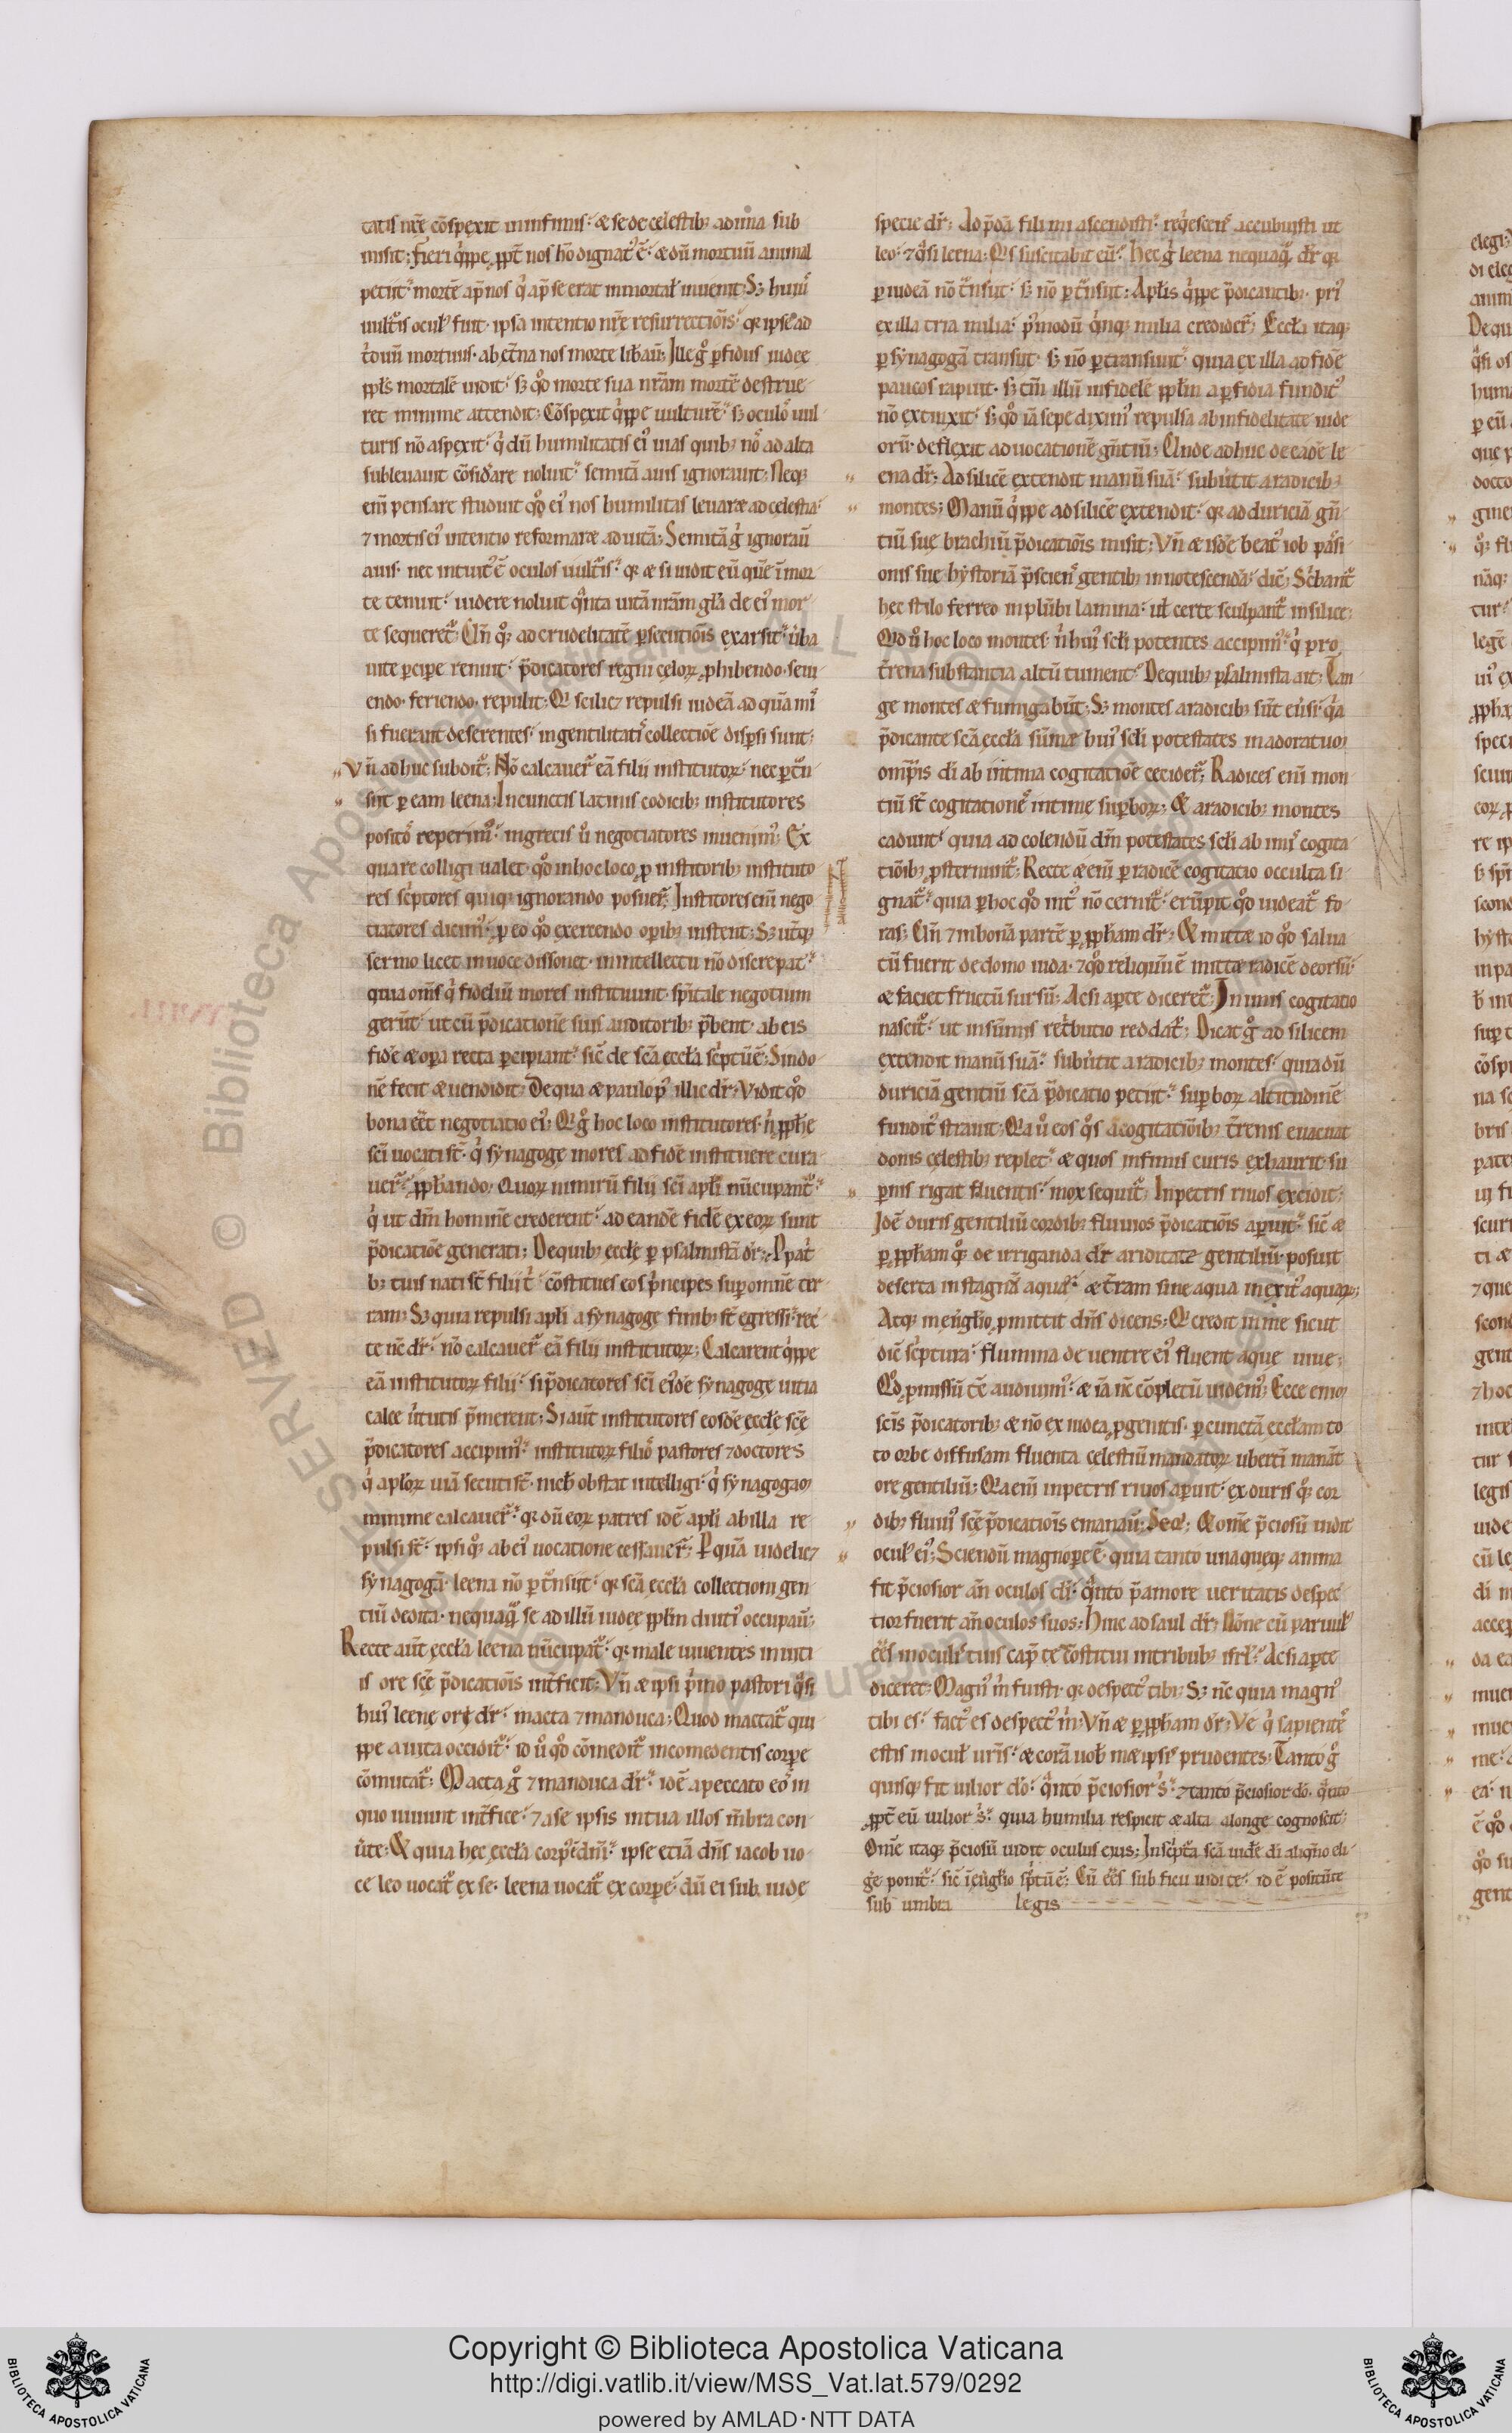 tatis nr̃e cõspexit in infimis. & se de celestib; ad ima sub
misit; fieri q̓ppe ꝓpt̃ nos hõ dignat᷒ ẽ. & dũ mortuũ animal
petiit. mortẽ ap̃ nos q̓ ap̃ se erat inmortał inuenit; S; hui᷒
uult̃is ocul᷒ fuit. ipsa intentio nr̃e resurrectiõis.
t̃duũ mortuus. ab et̃na nos morte lib̃aũ; Ille g̊ ꝑfidus iudee
ppl̃s mortalẽ uidit. s; qđ morte sua nr̃am mortẽ destrue
ret minime attendit; Cõspexit q̓ppe uulturẽ. s; oculõ uul
turis nõ aspexit. q̓ dũ humilitatis ei᷒ uias quib; nos̃ ad alta
subleuauit cõsid̃are noluit. semitã auis ignorauit; Neq;
em̃ pensare studuit qđ ei᷒ nos humilitas leuar& ad celestia.
⁊ mortis ei᷒ intentio reformar& ad uitã; Semitã g̊ ignoraũ
auis. nec intuit᷒ ẽ oculos uult̃is. q̃ & si uidit eũ quẽ ĩ mor
te tenuit. uidere noluit q̓nta uitã nr̃am gl̃a de ei᷒ mor
te sequeret̃; Uñ q̊; ad crudelitatẽ ꝑsecutiõis exarsit. ũba
uite ꝑcipe renuit. p̃dicatores regni celoꝝ ꝓhibendo. seui
endo. feriendo. repulit; Q̓ scilic; repulsi iudeã ad quã mi
si fuerant deserentes. in gentilitati᷒ collectiõe disꝑsi sunt;
Vñ adhuc subdit̃; Nõ calcauer̃ eã filii institutoꝝ. nec ꝑt̃n
siit ꝑ eam leena; In cunctis latinis codicib; institutores
positõ reperim᷒. in grecis ů negotiatores inuenim᷒; Ex
qua re colligi ualet. qđ in hoc loco ꝓ institorib; instituto
res sc̓ptores quiq; ignorando posuer̃; Institores eni nego
tiatores dicim᷒. ꝑ eo qđ exercendo oꝑib; instent; S; ut̃q;
sermo licet in uoce dissonet. in intellectu nõ discrepat.
quia om̃s q̓ fideliũ mores instituunt. sp̃itale negotium
gerũt. ut cũ p̃dicationẽ suis auditorib; p̃bent. ab eis
fidẽ & oꝑa recta ꝑcipiant. sic̃ de sc̃a eccl̃a sc̓ptũ ẽ; Sindo
nẽ fecit & uendidit; De qua & paulo p᷒ illic dr̃; Vidit qđ
bona eẽt negotiatio ei᷒; Q̓ g̊ hoc loco institutores. n̓ ꝓph̃e
sc̃i uocati st̃. q̓ synagoge mores ad fidẽ instituere cura
uer̃. ꝓph̃ando; Quoꝝ nimirũ filii sc̃i apl̃i nũcupant̃.
q̓ ut dm̃ hominẽ crederent. ad eandẽ fidẽ ex eoꝝ sunt
p̃dicatiõe generati; De quib; eccl̃e ꝑ psalmistã dr̃; P pat̓
b; tuis nati st̃ filii t̓. cõstitues eos p̓ncipes suꝑ omnẽ ter
ram; S; quia repulsi apl̃i a synagoge finib; st̃ egressi. rec
te nc̃ dr̃. nõ calcauer̃ eã filii institutoꝝ; Calcarent q̓ppe
eã institutoꝝ filii. si p̃dicatores sc̃i ei᷒dẽ synagoge uitia
calce ũtutis p̃merent; Si aut̃ institutores eosdẽ eccl̃e sc̃e
p̃dicatores accipim᷒. institutoꝝ filios̃ pastores ⁊ doctores
q̓ apl̃oꝝ uiã secuti st̃. nich̃ obstat intelligi. q̓ synagogam
minime calcauer̃. q̃ dũ eoꝝ patres idẽ apl̃i ab illa re
pulsi st̃. ipsi q̊; ab ei᷒ uocatione cessauer̃; P quã uidelic;
synagogã leena nõ ꝑt̃nsiit. q̃ sc̃a eccl̃a collectioni gen
tiũ dedita. nequaq̃ se ad illũ iudee ppl̃m diuti᷒ occupaũ;
Recte aut̃ eccl̃a leena nũcupat̃. q̃ male uiuentes in uiti
is ore sc̃e p̃dicatiõis int̃ficit; Vñ & ipsi p̓mo pastori q̓si
hui᷒ leene ori dr̃. macta ⁊ manduca; Quod mactat̃ qui
ppe a uita occidit̃. id ů qđ cõmedit̃ in comedentis corpe
cõmutat̃; Macta g̊ ⁊ manduca dr̃. idẽ a peccato eos̃ in
quo uiuunt int̃fice. ⁊ a se ipsis in tua illos m̃bra con
ũte; & quia hec eccl̃a corp᷒ ẽ dñi. ipse etiã dñs iacob uo
ce leo uocat̃ ex se. leena uocat̃ ex corpe. dũ ei sub iude
specie dr̃; Ad p̃dã fili mi ascendisti. req̓escens᷒ accubuisti ut
leo. ⁊ q̓si leena; Q̓s suscitabit eũ. Hec g̊ leena nequaq̃ dr̃ q̃
ꝑ iudeã nõ t̃nsiit. s; nõ ꝑt̃nsiit; Apl̃is q̓ppe p̃dicantib; pri᷒
ex illa tria milia. p᷒modũ q̓nq; milia credider̃; Eccl̃a itaq;
ꝑ synagogã transiit. s; nõ ꝑtransiuit. quia ex illa ad fidẽ
paucos rapuit. s; tm̃ illũ infidelẽ ppl̃m a ꝑfidia fundit᷒
nõ extinxit. s; qđ iã sepe dixim᷒ repulsa ab infidelitate iude
orũ. deflexit ad uocationẽ gñtiũ; Unde adhuc de eadẽ le
ena dr̃; Ad silicẽ extendit manũ suã. subũtit a radicib;
montes; Manũ q̓ppe ad silicẽ extendit. q̃ ad duriciã gñ
tiũ sue brachiũ p̃dicatiõis misit; Vñ & isdẽ beat᷒ iob passi
onis sue hystoriã p̃sciens᷒ gentib; innotescendã. dic̃; Sc̓bant̃
hec stilo ferreo in plũbi lamina. uł certe sculpant̃ in silice;
Qđ ů hoc loco montes. n̓ hui᷒ sc̃li potentes accipim᷒. q̓ pro
t̃rena substantia altũ tument. De quib; psalmista ait; Tan
ge montes & fumigabũt; S; montes a radicib; sũt eũsi. q̓a
p̃dicante sc̃a eccl̃a sũme hui᷒ sc̃li potestates in adoratione
omp̃is di ab intima cogitatiõe cecider̃; Radices eni mon
tiũ st̃ cogitationes̃ intime suꝑboꝝ; & a radicib; montes
cadunt. quia ad colendũ dm̃ potestates sc̃li ab imis᷒ cogita
tiõib; ꝓsternunt̃; Recte & em̃ ꝑ radicẽ cogitatio occulta si
gnat̃. quia ꝑ hoc qđ int᷒ nõ cernit̃. erũpit qđ uideat̃ fo
ras; Uñ ⁊ in bonã partẽ ꝑ ꝓph̃am dr̃; & mitt& id qđ salua
tũ fuerit de domo iuda. ⁊ qđ reliquũ ẽ mitt& radicẽ deorsũ.
& faciet fructũ sursũ; Acsi aꝑte diceret̃; In imis cogitatio
nascit̃. ut in sũmis ret̓butio reddat̃; Dicat g̊ ad silicem
extendit manũ suã. subũtit a radicib; montes. quia dũ
duriciã gentiũ sc̃a p̃dicatio petiit. suꝑboꝝ altitudinẽ
fundit᷒ strauit; Q̓a ů eos q̓s a cogitatiõib; t̃renis euacuat
donis celestib; replet. & quos infimis curis exhaurit. su
ꝑnis rigat fluentis. mox sequit̃; In petris riuos excidit;
Idẽ duris gentiliũ cordib; fluuios p̃dicatiõis aꝑuit. sic̃ &
ꝑ ꝓph̃am q̊; de irriganda dr̃ ariditate gentiliũ. posuit
deserta in stagna aquaꝝ. & t̃ram sine aqua in exit᷒ aquaꝝ;
Atq; in eũgl̃io ꝓmittit dñs dicens; Q̓ credit in me sicut
dic̃ sc̓ptura. flumina de uentre ei᷒ fluent aque uiue;
Qđ ꝓmissũ ẽẽ audiuim᷒. & iã nc̃ cõpletũ uidem᷒; Ecce enim
sc̃is p̃dicatorib; & nõ ex iudea ꝓgenitis. ꝑ cunctã eccl̃am to
to orbe diffusam fluenta celestiũ mandatoꝝ ubertĩ manãt
ore gentiliũ; Q̓a em̃ in petris riuos aꝑuit. ex duris q̊; cor
dib; fluui᷒ sc̃e p̃dicatiõis emanaũ; Seq̓; & om̃e p̃ciosũ uidit
ocul᷒ ei᷒; Sciendũ magnopere ẽ. quia tanto unaqueq; anima
fit p̃ciosior añ oculos di. q̓nto p̃ amore ueritatis despec
tior fuerit añ oculos suos; Hinc ad saul dr̃; Nõne cũ paruul᷒
eẽs in oculis tuis cap̃ te cõstitui in tribub; isrl̃. Acsi aꝑte
diceret; Magn᷒ m̓ fuisti. q̃ despect᷒ tibi; S; nc̃ quia magn᷒
tibi es. fact᷒ es despect᷒ m̓; Vñ & ꝑ ꝓph̃am dr̃; Ve q̓ sapientes̃
estis in ocuł ur̃is. & corã uob̃ m& ipsis᷒ prudentes; Tanto g̊
quisq; fit uilior dõ. q̓nto p̃ciosior s̓. ⁊ tanto p̃ciosior dõ. q̓nto
ꝓpt̃ eũ uilior s̓. quia humilia respicit & alta a longe cognoscit;
Om̃e itaq; p̃ciosũ uidit oculus eius; In sc̓pt̃a sc̃a uidẽ di aliq̓ño eli
ge᷒ ponit̃. sic̃ ĩ eũgl̃io sc̓ptũ ẽ; Cũ eẽs sub ficu uidi te. id ẽ positũ te
sub umbra legis
Copyright © Biblioteca Apostolica Vaticana
http://digi.vatlib.it/view/MSS_Vat.lat.579/0292
powered by AMLAD · NTT DATA